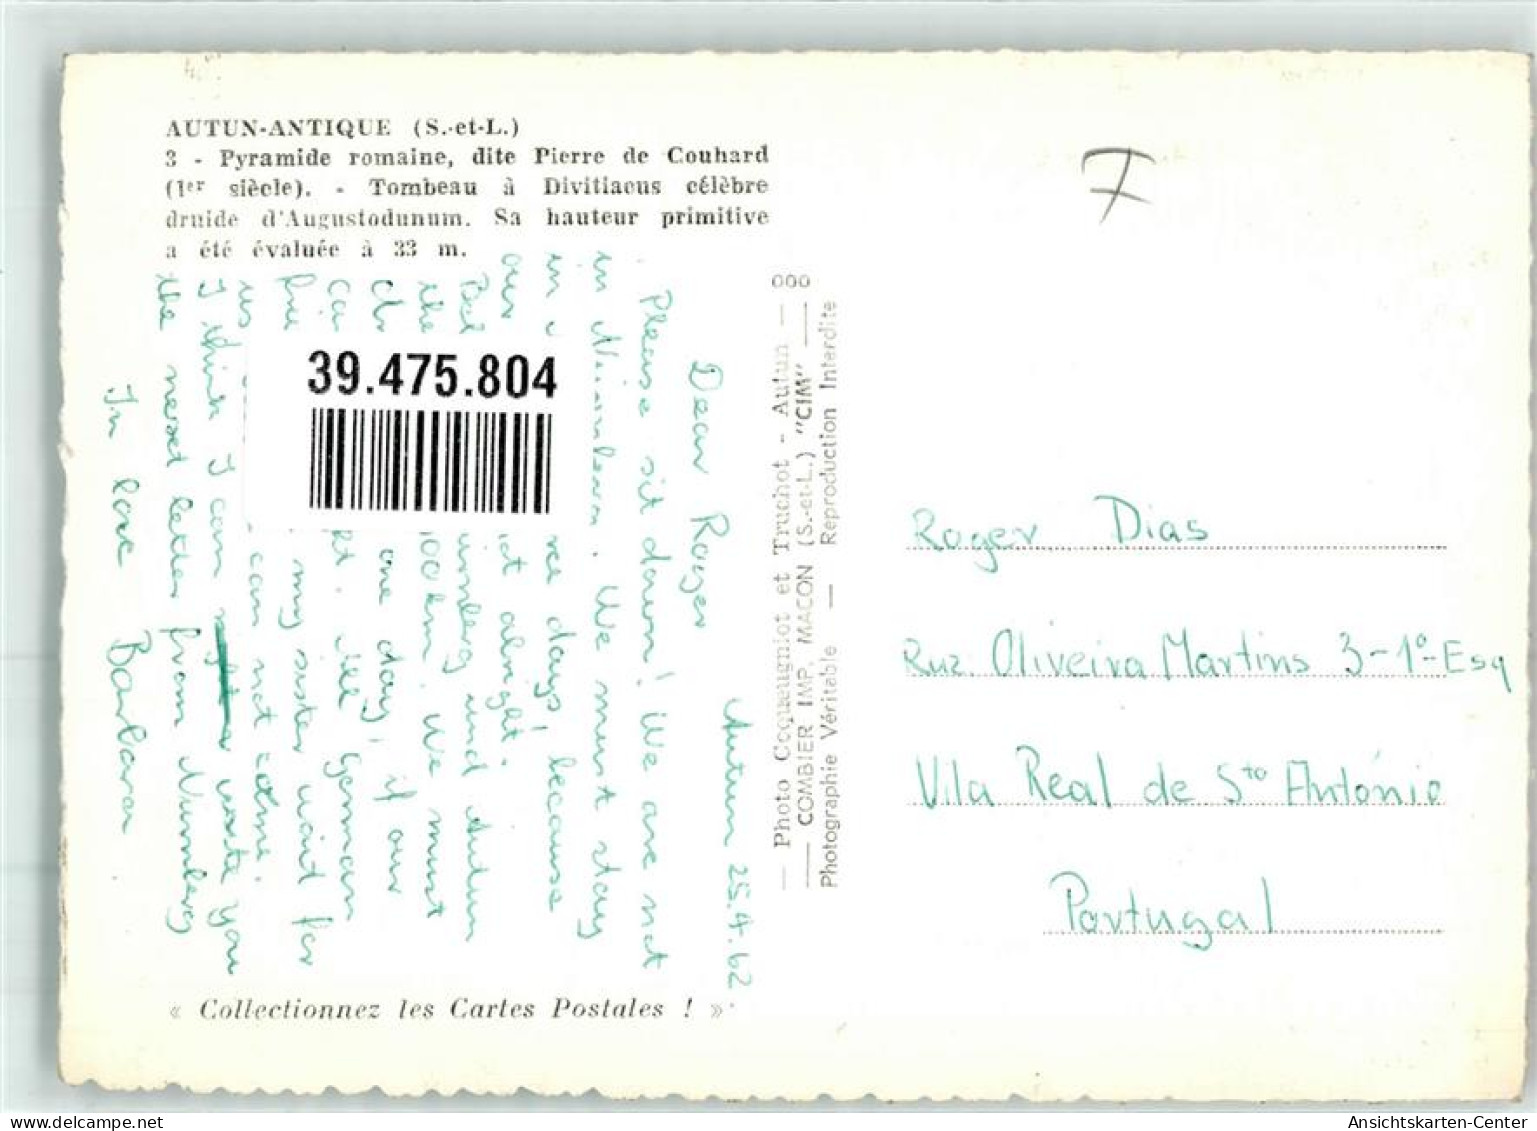 AUTUN-ANTIQUE (S.-et-L.)
3 - Pyramide romaine, dite Pierre de Couhard
(1er siècle). - Tombeau à Divitiacus célèbre
druide d'Augustodunum. Sa hauteur primitive
a été évaluée à 33 m.
Autun 25.4.62.
Dear Roger
Please sit down! We are not
in . We must stay
in days, because
our alright.
the 100 km. We must
one day, if our
German
my sister wait for
us can not come.
I think I can write you
the next letter from Nürnberg
In love Barbara.
39.475.804
« Collectionnez les Cartes Postales ! »
— Photo Coqueugniot et Truchot - Autun —
— COMBIER IMP. MACON (S.-et-L.) "CIM" —
Photographie Véritable — Reproduction Interdite
7
Roger Dias
Rua Oliveira Martins 3-1º-Esq
Vila Real de Sto António
Portugal
Ansichtskarten-Center
https://www.ansichtskarten-center.de